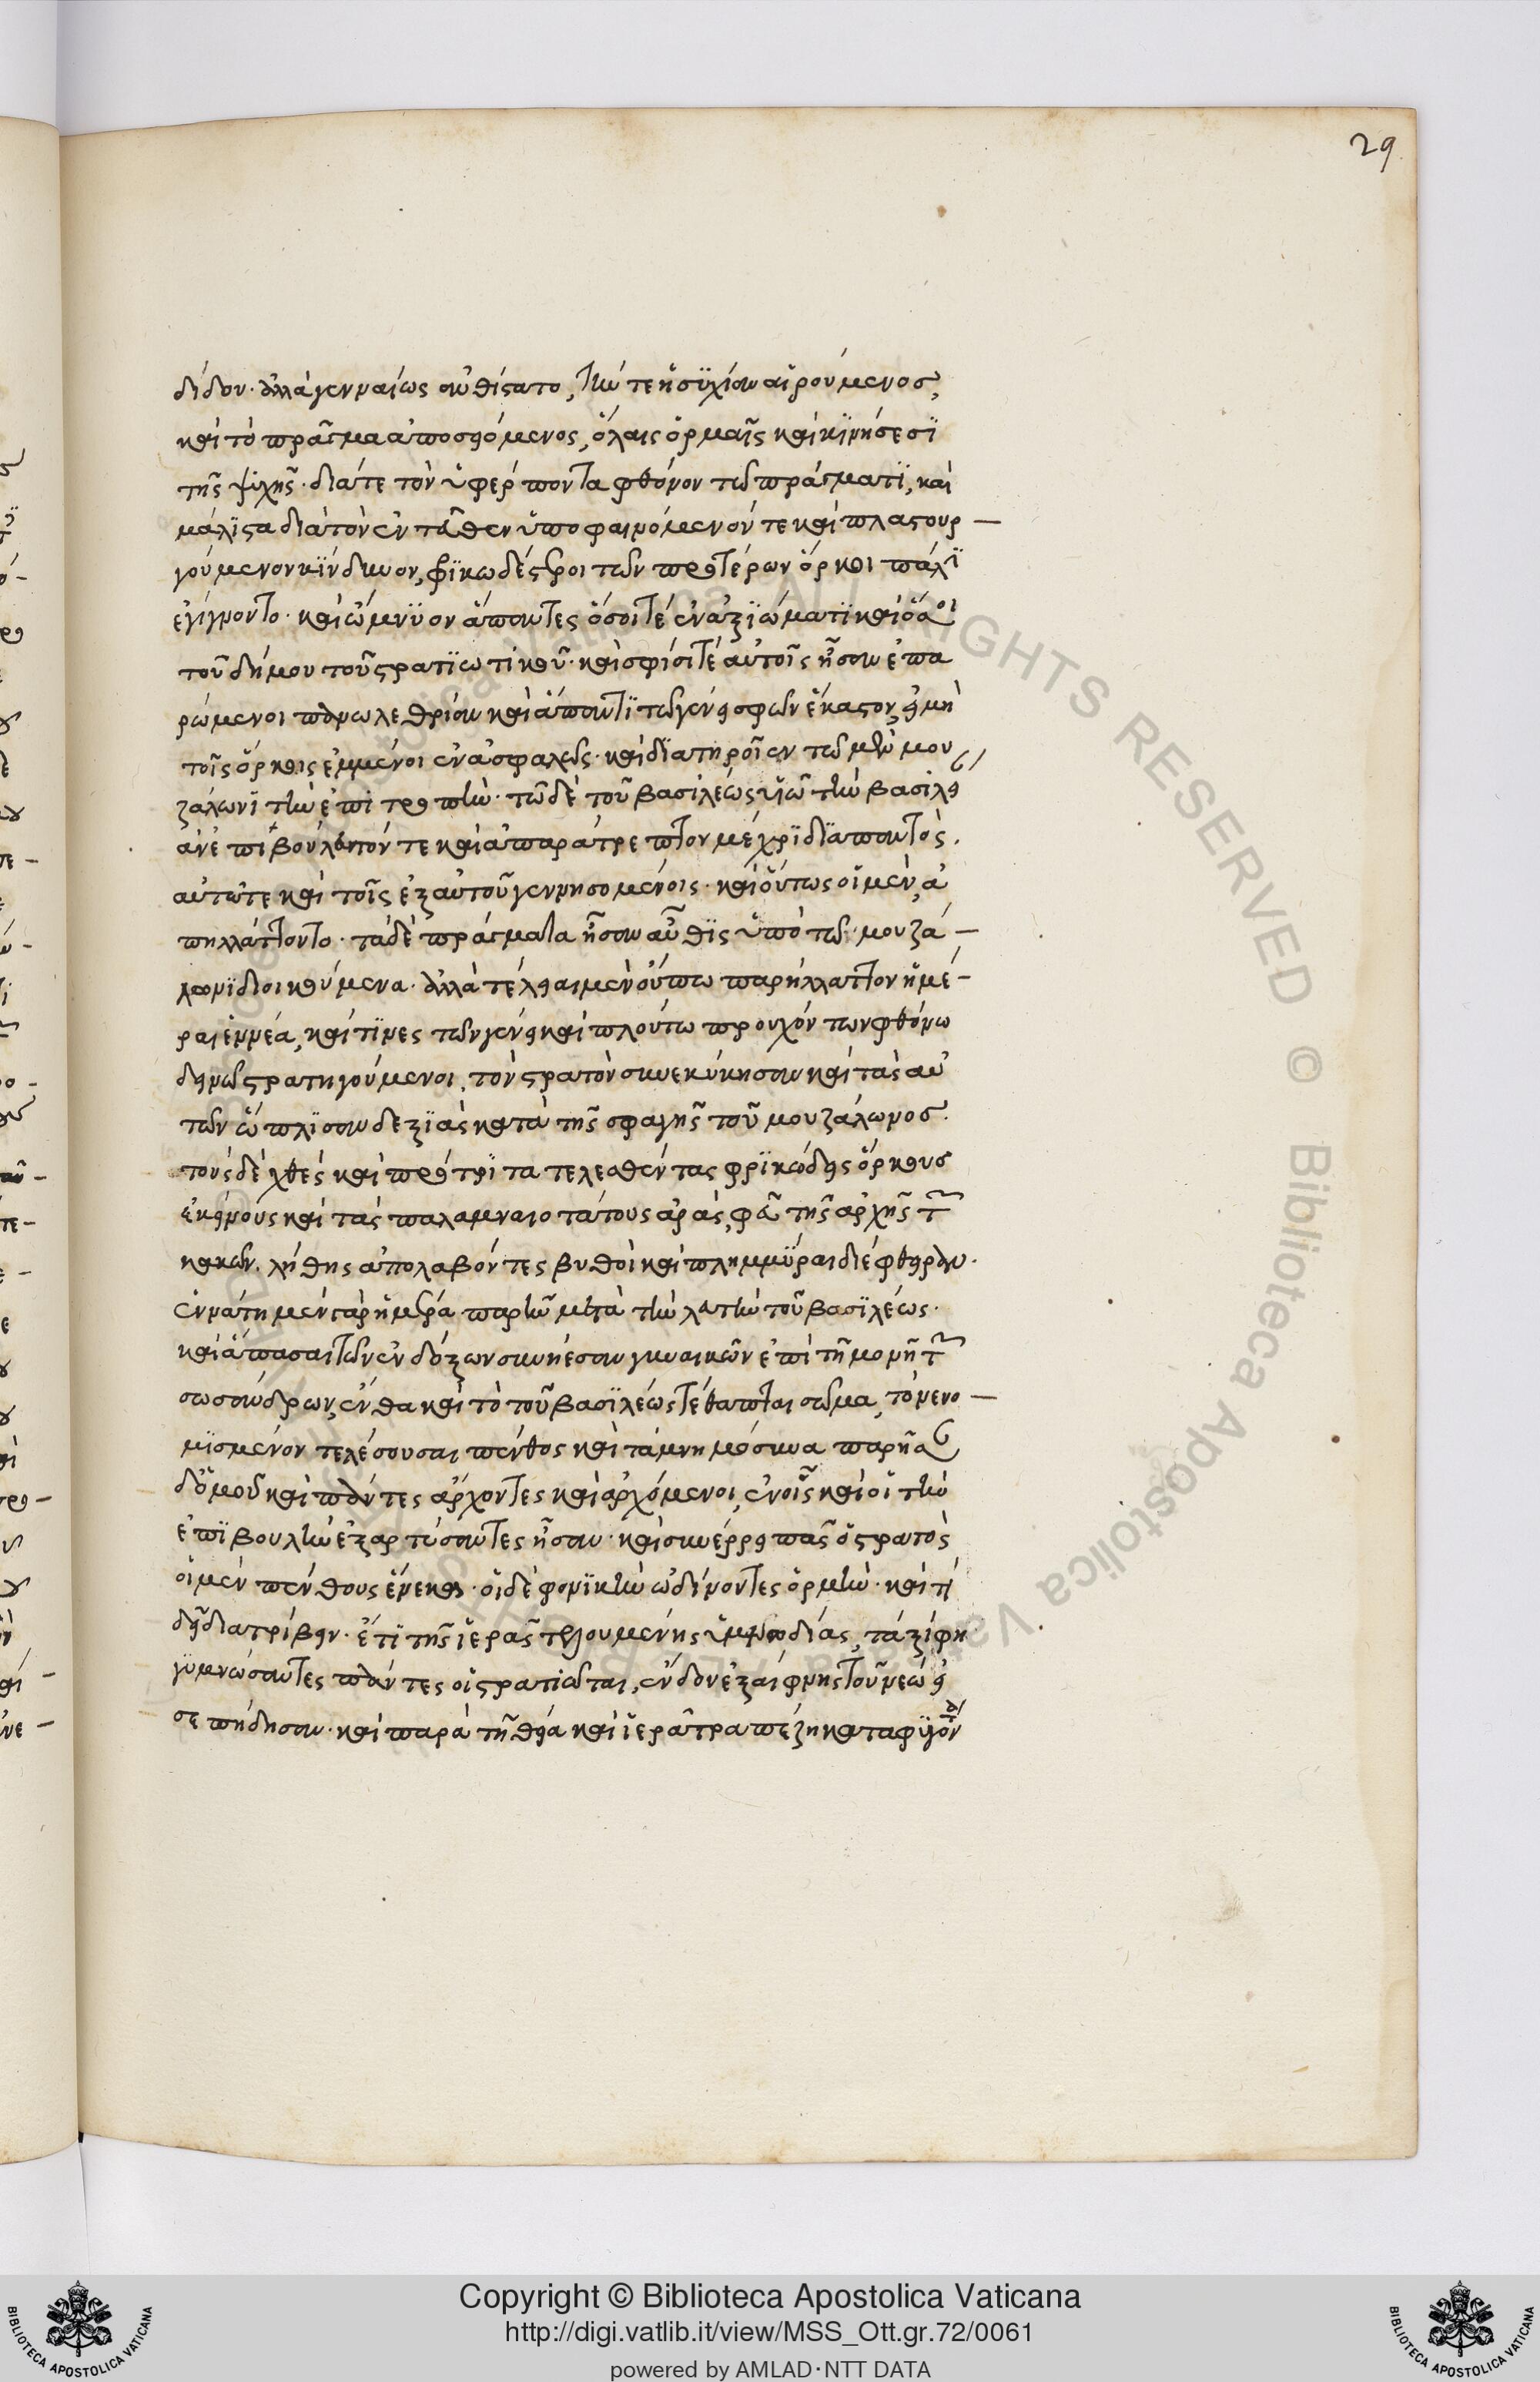 29
δίδου· ἀλλὰ γενναίως ἀνθίστατο, τήν τε ἡσυχίαν αἱρούμενος,
καὶ τὸ πρᾶγμα ἀποσειόμενος, ὅλαις ὁρμαῖς καὶ κινήσεσι
τῆς ψυχῆς· διά τε τὸν ὑφέρποντα φθόνον τῷ πράγματι, καὶ
μάλιστα διὰ τὸν ἐντεῦθεν ὑποφαινόμενόν τε καὶ πλαστουρ-
γούμενον κίνδυνον, φρικωδέστεροι τῶν προτέρων ὅρκοι πάλιν
ἐγίγνοντο· καὶ ὤμνυον ἅπαντες ὅσοι τὲ ἐν ἀξιώματι καὶ ὅσοι
τοῦ δήμου τοῦ στρατιωτικοῦ· καὶ σφίσι τὲ αὐτοῖς ἦσαν ἐπα
ρώμενοι πανωλεθρίαν καὶ ἅπαντι τῷ γένει σφῶν ἕκαστον, εἰ μὴ
τοῖς ὅρκοις ἐμμένοιεν ἀσφαλῶς· καὶ διατηροῖεν τῷ μὲν μου
ζάλωνι τὴν ἐπιτροπήν· τῷ δὲ τοῦ βασιλέως υἱῷ τὴν βασιλεί
ἀνεπιβούλευτόν τε καὶ ἀπαράτρεπτον μέχρι διαπαντὸς.
αὐτῷ τε καὶ τοῖς ἐξ αὐτοῦ γεννησομένοις· καὶ οὕτως οἱ μὲν, ἀ
πηλλάττοντο· τὰ δὲ πράγματα ἦσαν αὖθις ὑπὸ τῷ μουζά-
λωνι διοικούμενα· ἀλλὰ τέλειαι μὲν οὔπω παρήλλαττον ἡμέ-
ραι ἐννέα, καί τινες τῶν γένει καὶ πλούτω προυχόντων φθόνω
δεινῷ στρατηγούμενοι, τὸν στρατὸν συνεκύκησαν καὶ τὰς αὐ
τῶν ὥπλισαν δεξιὰς κατὰ τῆς σφαγῆς τοῦ μουζάλωνος·
τοὺς δὲ χθὲς καὶ πρότριτα τελεσθέντας φρικώδεις ὅρκους
ἐκείνους καὶ τὰς παλαμναιοτάτους ἀρὰς, φεῦ τῆς ἀρχῆς τῶν
κακῶν. λήθης ἀπολαβόντες βυθοὶ καὶ πλημμύραι διέφθειραν.
ἐννάτη μὲν γὰρ ἡμέρα παρῆν μετὰ τὴν τελευτὴν τοῦ βασιλέως·
καὶ ἅπασαι τῶν ἐνδόξων συνήεσαν γυναικῶν ἐπὶ τῇ μονῇ τῶν
σωσάνδρων, ἔνθα καὶ τὸ τοῦ βασιλέως τέθαπται σῶμα, τὸ νενο-
μισμένον τελέσουσαι πένθος καὶ τὰ μνημόσυνα παρῆσαν
δ' ὁμοῦ καὶ πάντες ἄρχοντες καὶ ἀρχόμενοι, ἐν οἷς καὶ οἱ τὴν
ἐπιβουλὴν ἐξαρτύσαντες ἦσαν· καὶ συνέρρει πᾶς ὁ στρατὸς
οἱ μὲν πένθους ἕνεκεν· οἱ δὲ φονικὴν ὠδίνοντες ὁρμήν· καὶ τί
δεῖ διατρίβειν· ἔτι τῆς ἱερᾶς τελουμένης ὑμνῳδίας, τὰ ξίφη
γυμνώσαντες πάντες οἱ στρατιῶται, ἔνδον ἐξαίφνης τοῦ νεὼ εἰ
σεπήδησαν· καὶ παρὰ τῇ θεία καὶ ἱερᾷ τραπέζη καταφυγόντα
Copyright © Biblioteca Apostolica Vaticana
http://digi.vatlib.it/view/MSS_Ott.gr.72/0061
powered by AMLAD·NTT DATA